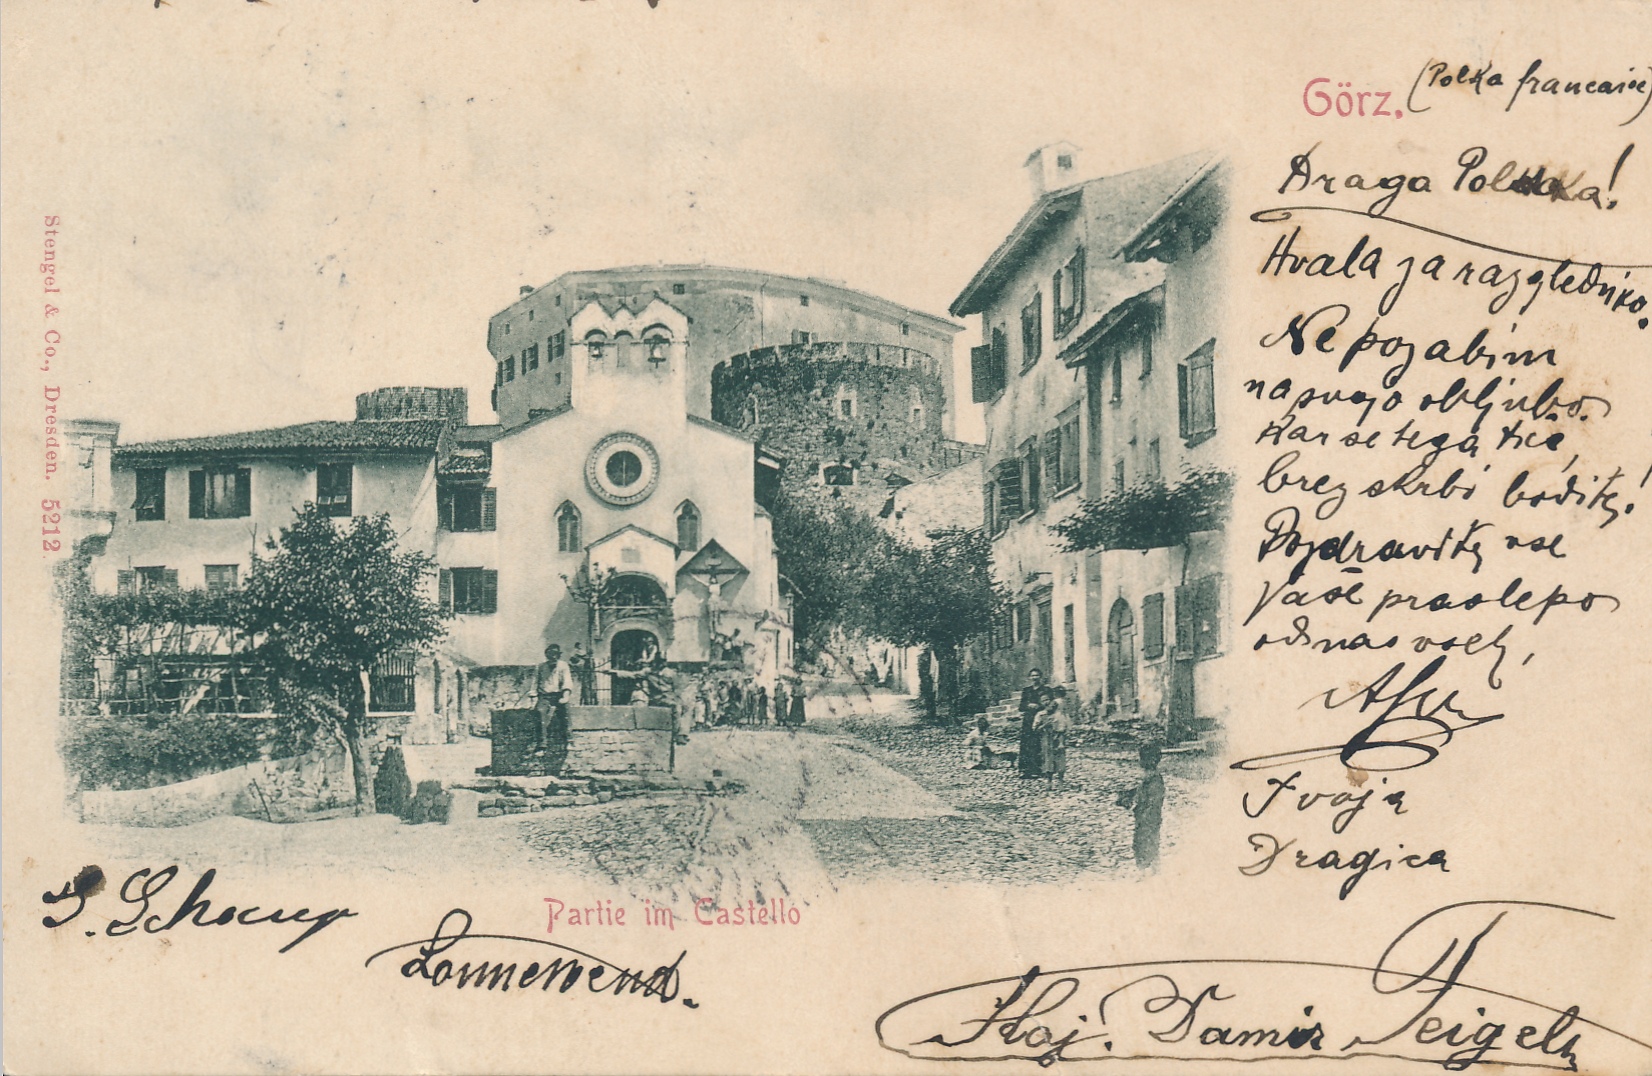 Görz.
(Polka francaise)
Draga Polka!
Hvala za razglednico.
Ne pozabim
na svojo obljubo.
Kar se tega tiče,
brez skrbi bodite!
Pozdravite vse
Vaše prav lepo
od nas vseh,
Tvoja
Dragica
Stengel & Co., Dresden. 5212
Partie im Castello
Sonnewend.
Damir Feigel